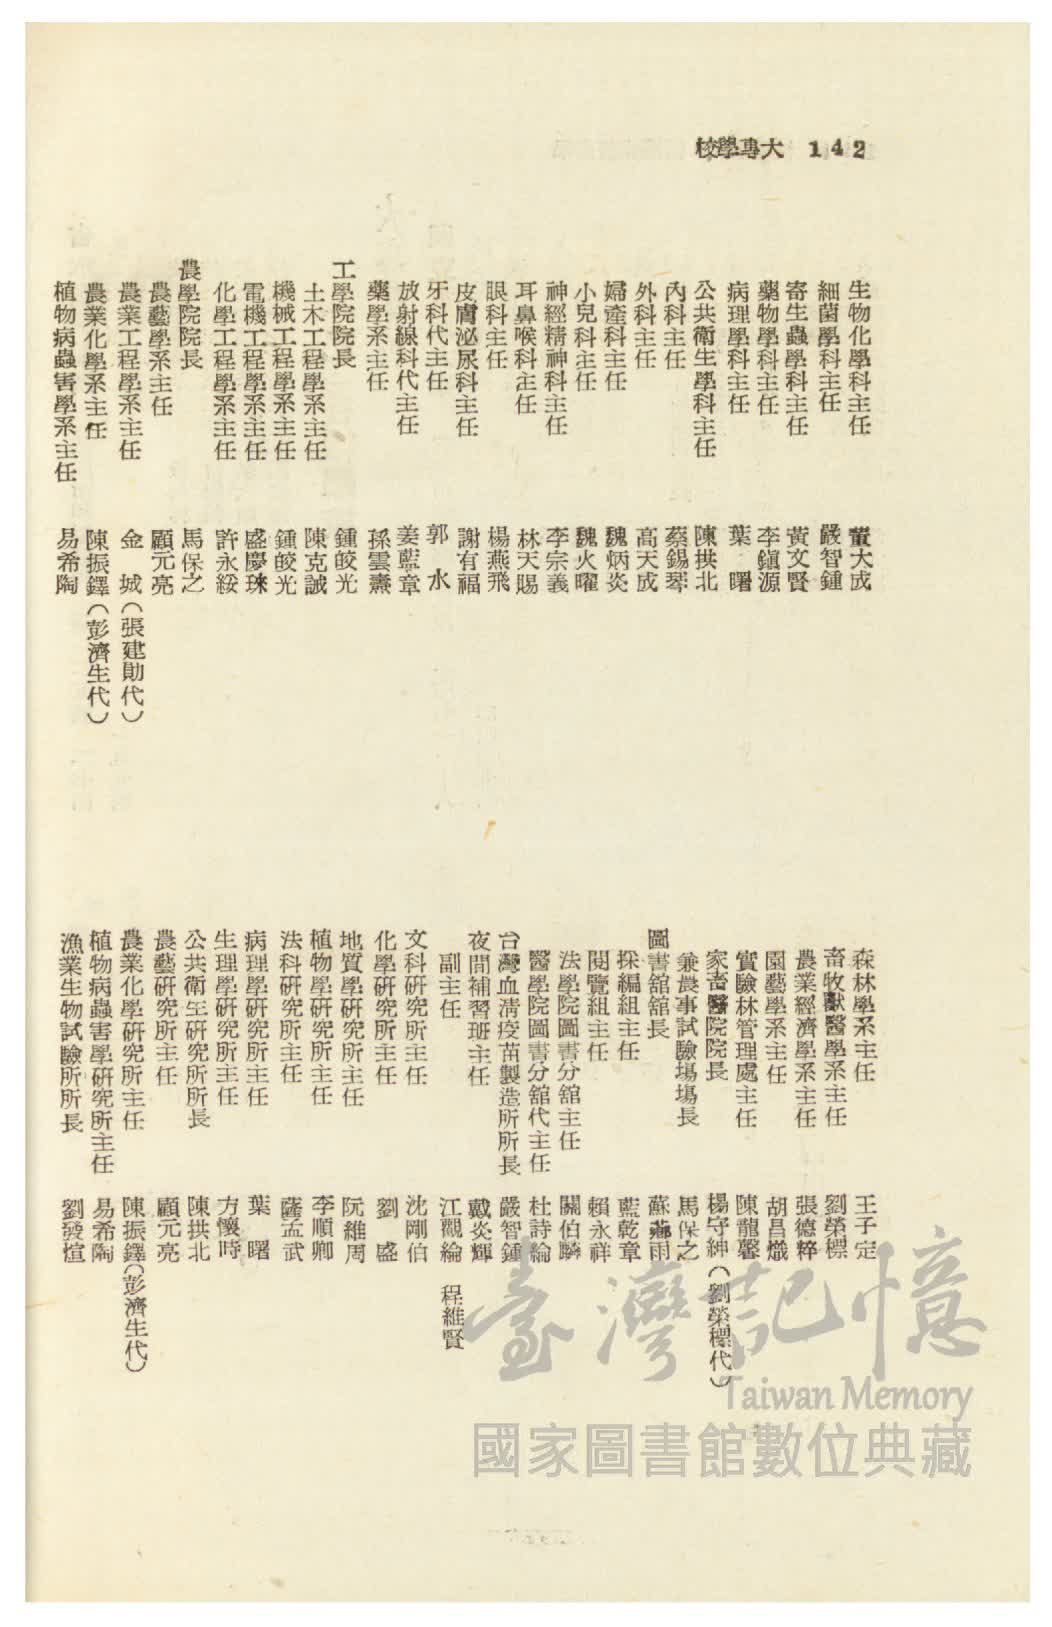 142 大專學校
生物化學科主任 董大成
細菌學科主任 嚴智鍾
寄生蟲學科主任 黃文賢
藥物學科主任 李鎮源
病理學科主任 葉 曙
公共衛生學科主任 陳拱北
內科主任 蔡錫琴
外科主任 高天成
婦產科主任 魏炳炎
小兒科主任 魏火曜
神經精神科主任 李宗義
耳鼻喉科主任 林天賜
眼科主任 楊燕飛
皮膚泌尿科主任 謝有福
牙科代主任 郭 水
放射線科代主任 姜藍章
藥學系主任 孫雲燾
工學院院長 鍾皎光
土木工程學系主任 陳克誠
機械工程學系主任 鍾皎光
電機工程學系主任 盛慶琜
化學工程學系主任 許永綏
農學院院長 馬保之
農藝學系主任 顧元亮
農業工程學系主任 金 城(張建勛代)
農業化學系主任 陳振鐸(彭濟生代)
植物病蟲害學系主任 易希陶
森林學系主任 王子定
畜牧獸醫學系主任 劉榮標
農業經濟學系主任 張德粹
園藝學系主任 胡昌熾
實驗林管理處主任 陳龍馨
家畜醫院院長 楊守紳(劉榮標代)
兼農事試驗場場長 馬保之
圖書舘舘長 蘇薌雨
採編組主任 藍乾章
閱覽組主任 賴永祥
法學院圖書分舘主任 關伯麟
醫學院圖書分舘代主任 杜詩綸
台灣血清疫苗製造所所長 嚴智鍾
夜間補習班主任 戴炎輝
副主任 江觀綸 程維賢
文科研究所主任 沈剛伯
化學研究所主任 劉 盛
地質學研究所主任 阮維周
植物學研究所主任 李順卿
法科研究所主任 薩孟武
病理學研究所主任 葉 曙
生理學研究所主任 方懷時
公共衛生研究所所長 陳拱北
農藝研究所主任 顧元亮
農業化學研究所主任 陳振鐸(彭濟生代)
植物病蟲害學研究所主任 易希陶
漁業生物試驗所所長 劉發煊
臺灣記憶
Taiwan Memory
國家圖書館數位典藏